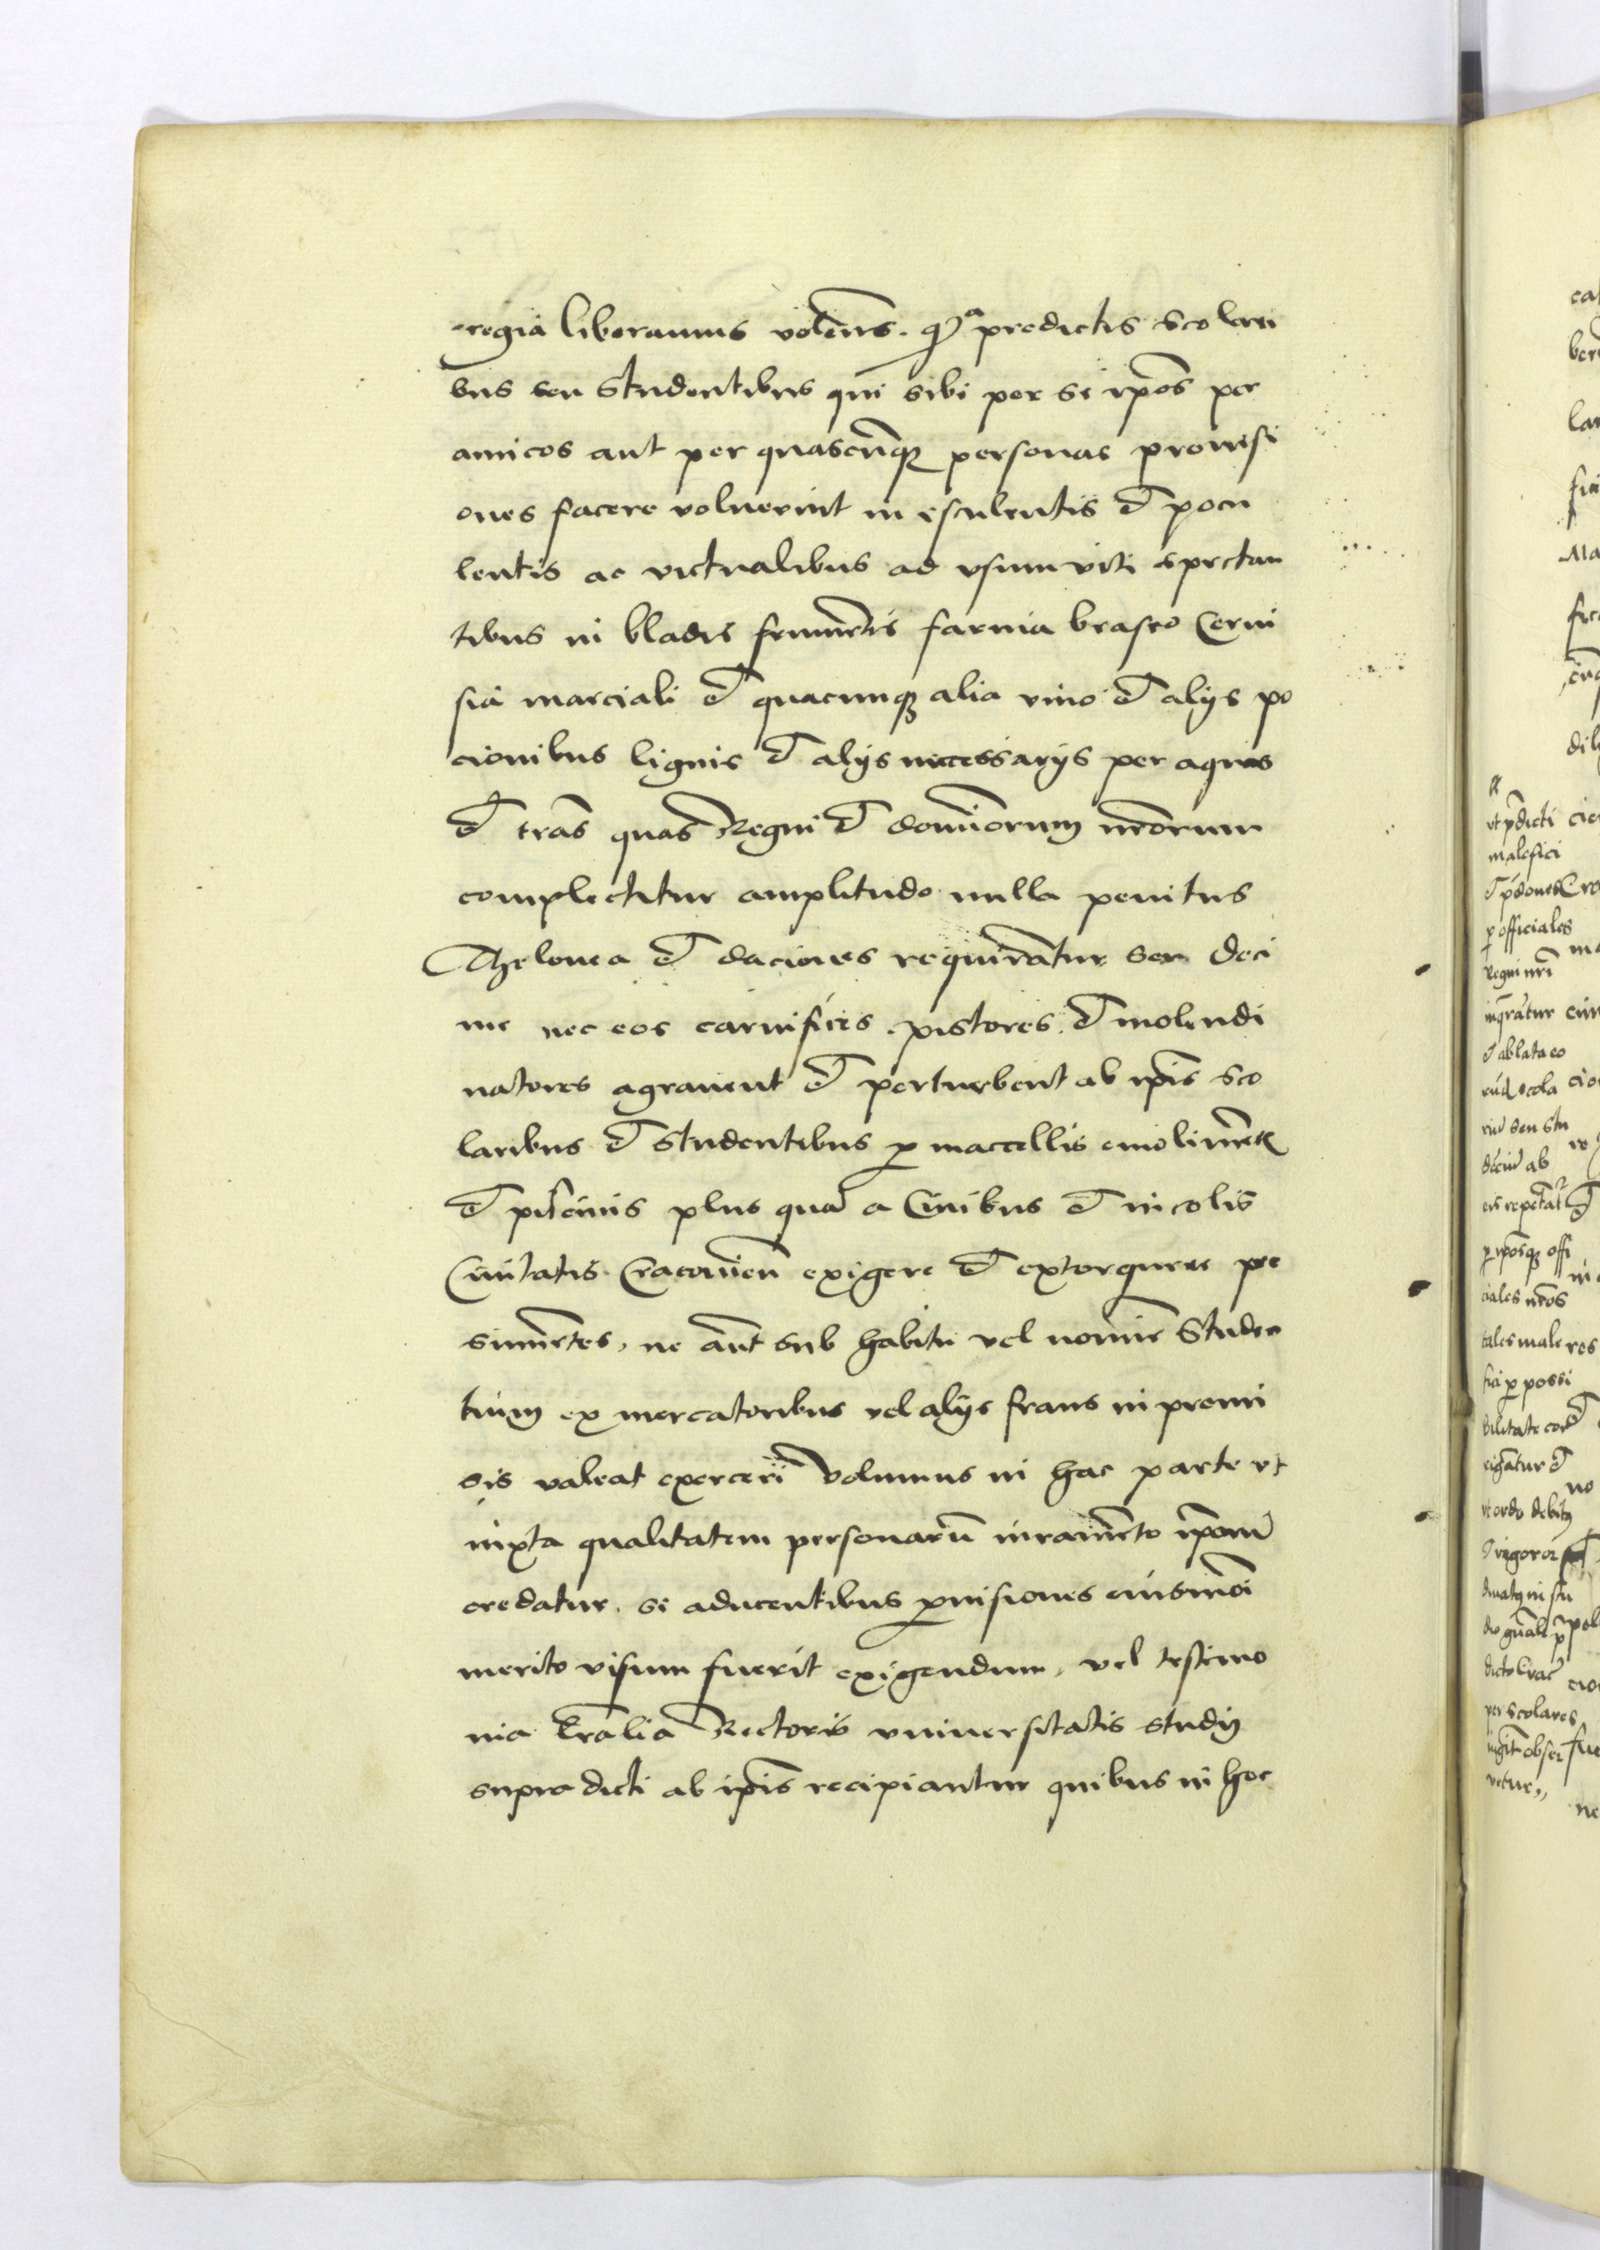 regia liberamus volentes. Qͣ predictis Scolari
bus seu Studentibus qui sibi per se ip̄os per
amicos aut per quascunq3 personas prouisi
ones facere voluerint in esculentis et pocu
lentis ac victualibus ad vsum viti spectan
tibus in bladis frumētis farina braseo Cerui
sia marciali et quacunq3 alia vino et alijs po
cionibus lignis et alijs necessarijs per aquas
et tr̄as quas Regni et dominiorum nr̄orum
complectitur amplitudo nulla penitus
Thelonea et daciones requirātur seu deci
me nec eos carnifices pistores et molendi
natores agrauent et perturbent ab ip̄is sco
laribus et studentibus ꝑ maccellis emolimēt
et piscinis plus quā a Ciuibus et incolis
Ciuitatis Cracouien̄ exigere et extorquere pre
sumētes, ne aūt sub habitu vel nomīe Studen
tium ex mercatoribus vel alijs fraus in premi
sis valeat exerceri Volumus in hac parte vt
iuxta qualitatem personarū iuramēto ip̄orū
credatur. si aducentibus ꝓuisiones eiusmōi
merito visum fuerit exigendum, vel testimo
nia l̄ralia Rectoris vniuersitatis studij
supra dicti ab ip̄is recipiantur quibus in hoc
vt p̄dicti
malefici
et p̄dones
ꝑ officiales
Regni nr̄i
inq̄rātur
et ablata eo
rūd scola
riū seu stu
dēciū ab
eis repetāt
ꝑ ip̄osq3 offi
ciales nr̄os
tales male
fici ꝑ possi
bilitate
rigātur et
vt ordo debit9
et vigoror
in stu
dio gn̄ali
dicto Crac̄
per scolares
obser
vetur